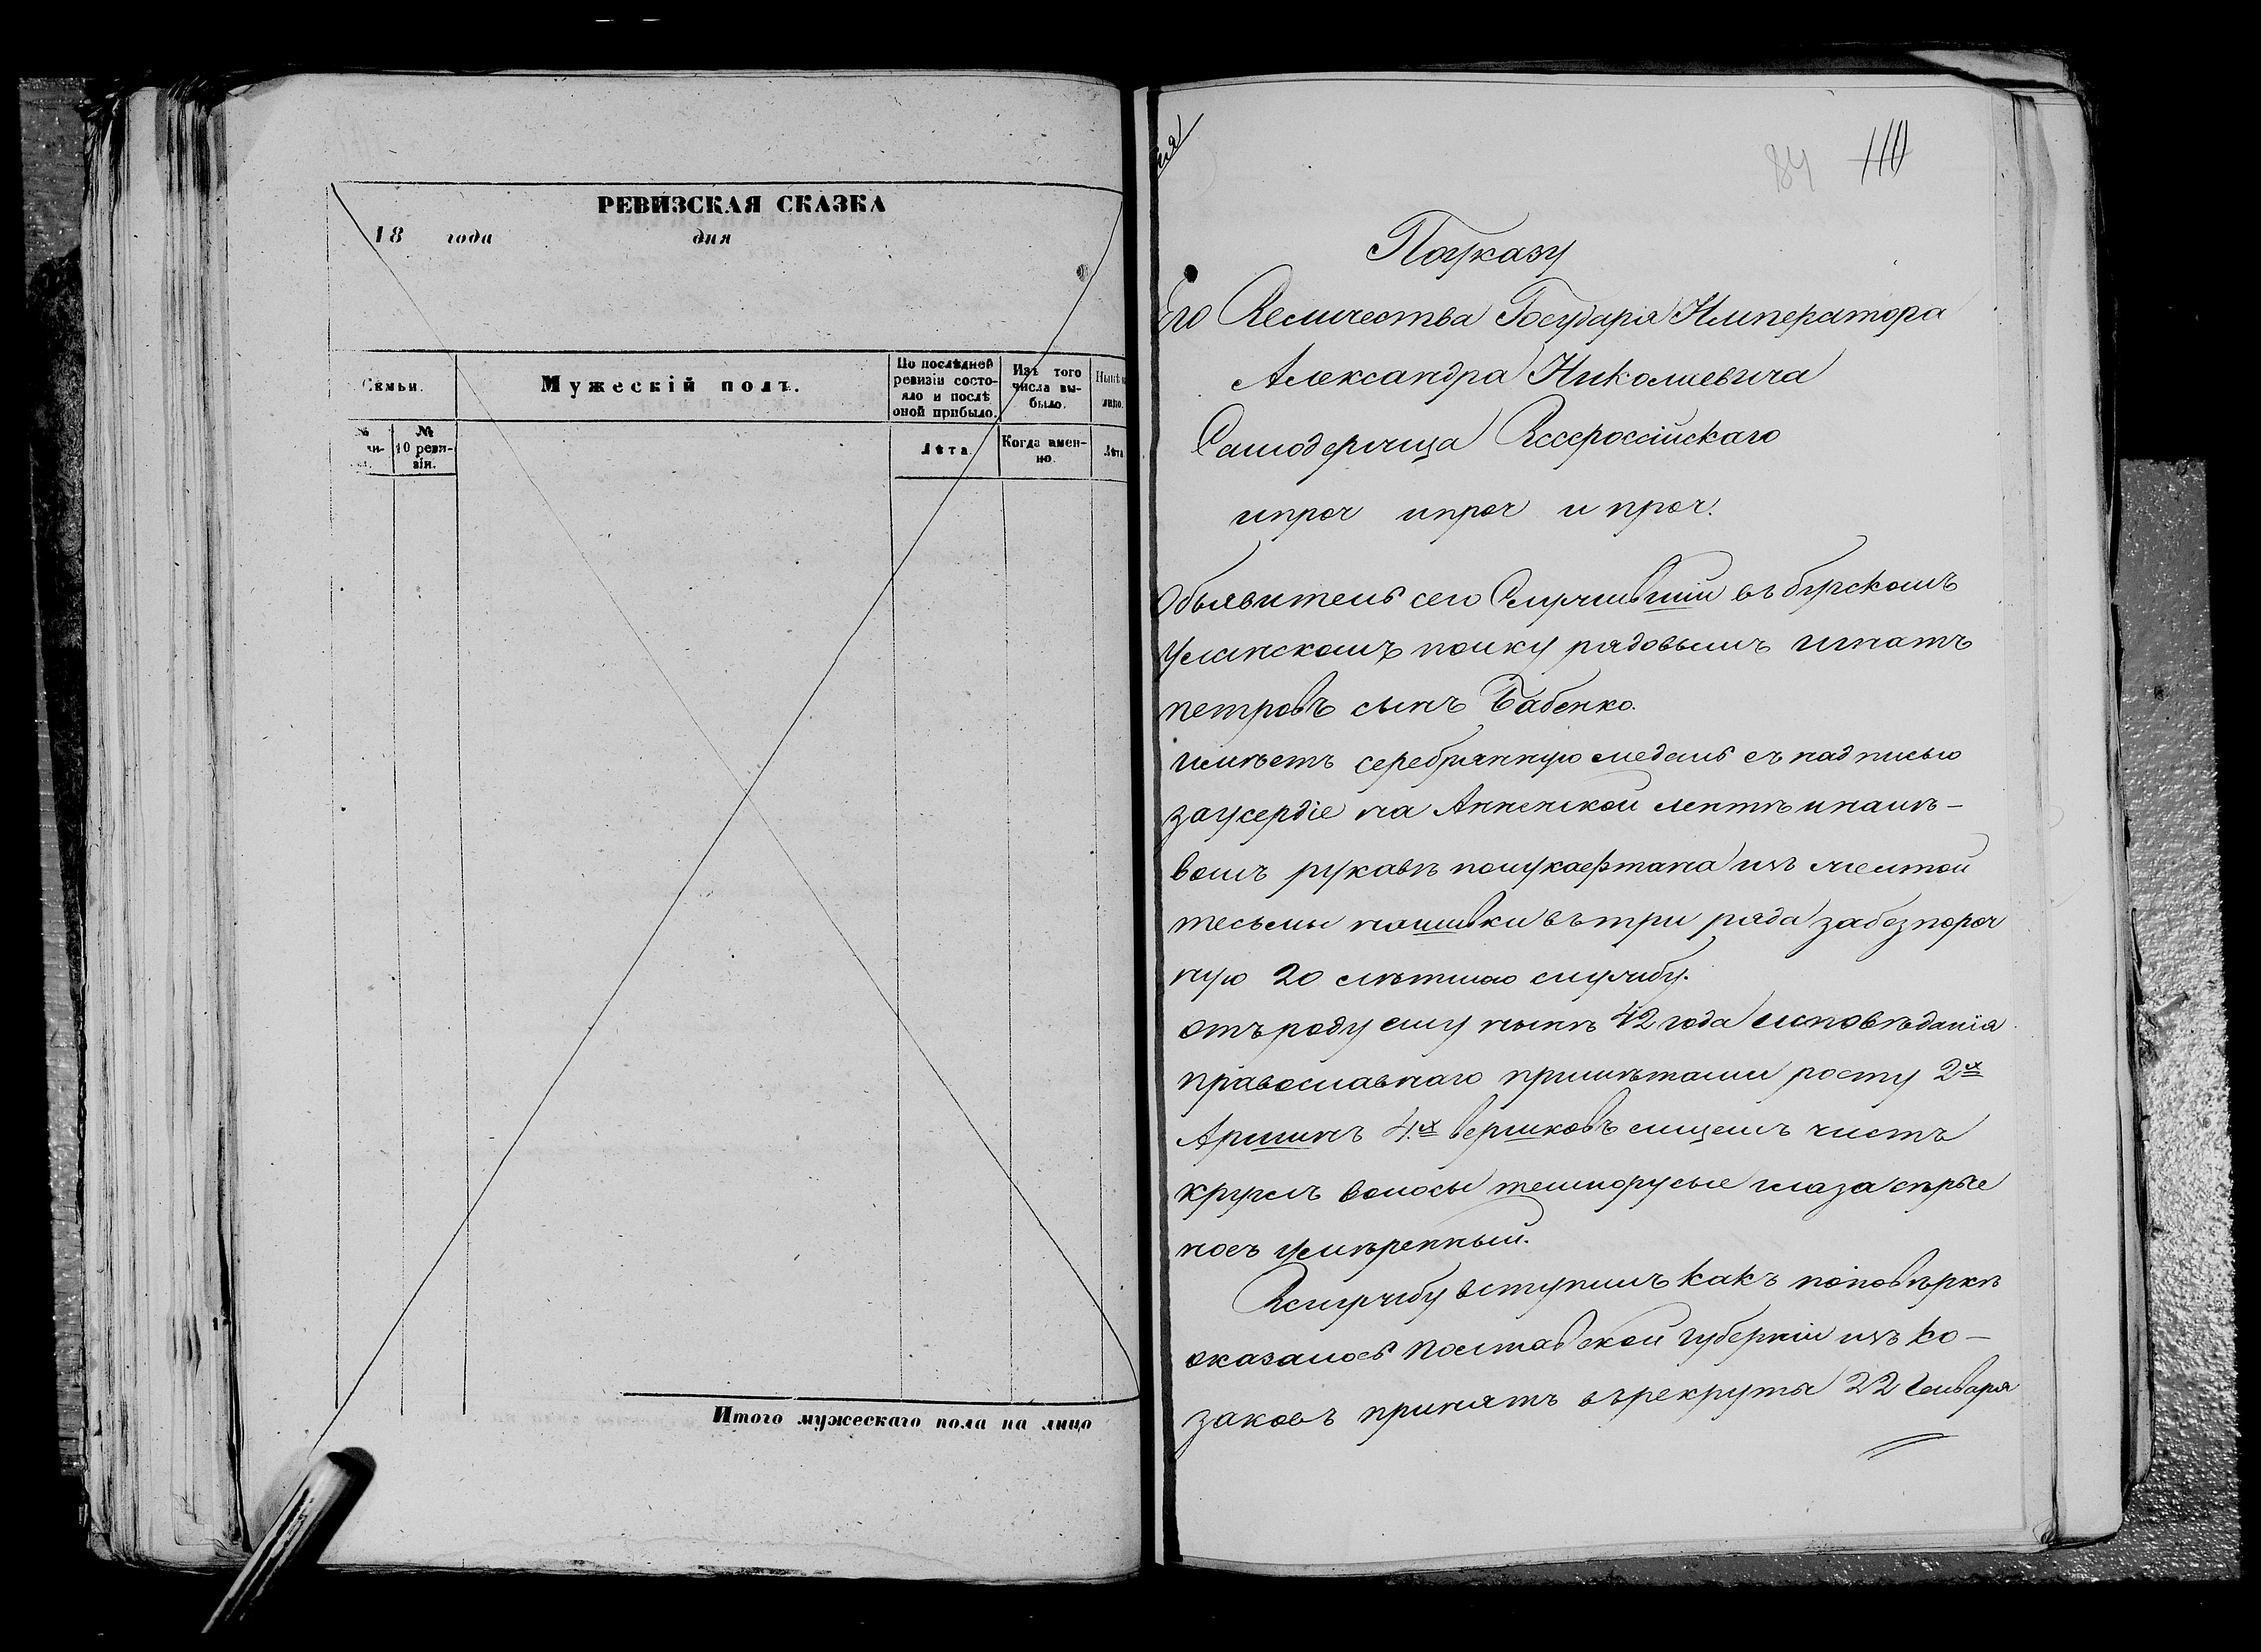 РЕВИЗСКАЯ СКАЗКА
18 года дня
Семьи.
Мужескій полъ.
По послѣдней
ревизіи состо-
яло и послѣ
оной прибыло.
Изъ того
числа вы-
было.
Нынѣ
лицо.
№
10 реви-
зіи.
Лѣта.
Когда имен-
но.
Лѣта
Итого мужескаго пола на лицо
84 110
Поуказу
Его Величества Государя Императора
Александра Николаевича
Самодержца Всероссійскаго
ипроч ипроч и проч.
Объявитель сего Служившій въ бугскомъ
Уланскомъ полку рядовымъ игнатъ
петровъ сынъ Бабенко.
имѣетъ серебрянную медаль съ надписью
заусердіе на Анненской лентѣ иналѣ-
вомъ рукавѣ полукафтана изъ желтой
тесьмы нашивки въ три ряда забезпороч
ную 20 лѣтнюю службу.
отъ роду ему нынѣ 42 года исповѣданія
православнаго примѣтами росту 2х
Аршинъ 4.х вершковъ лицемъ чистъ
круглъ волосы темнорусые глаза сѣрые
носъ умѣренный.
Вслужбу вступилъ какъ поповѣркѣ
оказалось полтавской губерніи изъ ко-
заковъ принятъ въ рекруты 22 Генваря